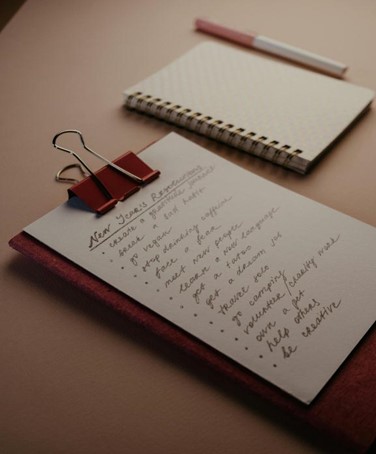 New Year's Resolutions
• create a gratitude journal
• seize a bad habit
• go vegan
• stop drinking caffeine
• face a fear
• meet new people
• learn a new language
• get a tattoo
• get a dream job
• travel solo
• go camping
• volunteer/charity work
• own a pet
• help others
• be creative